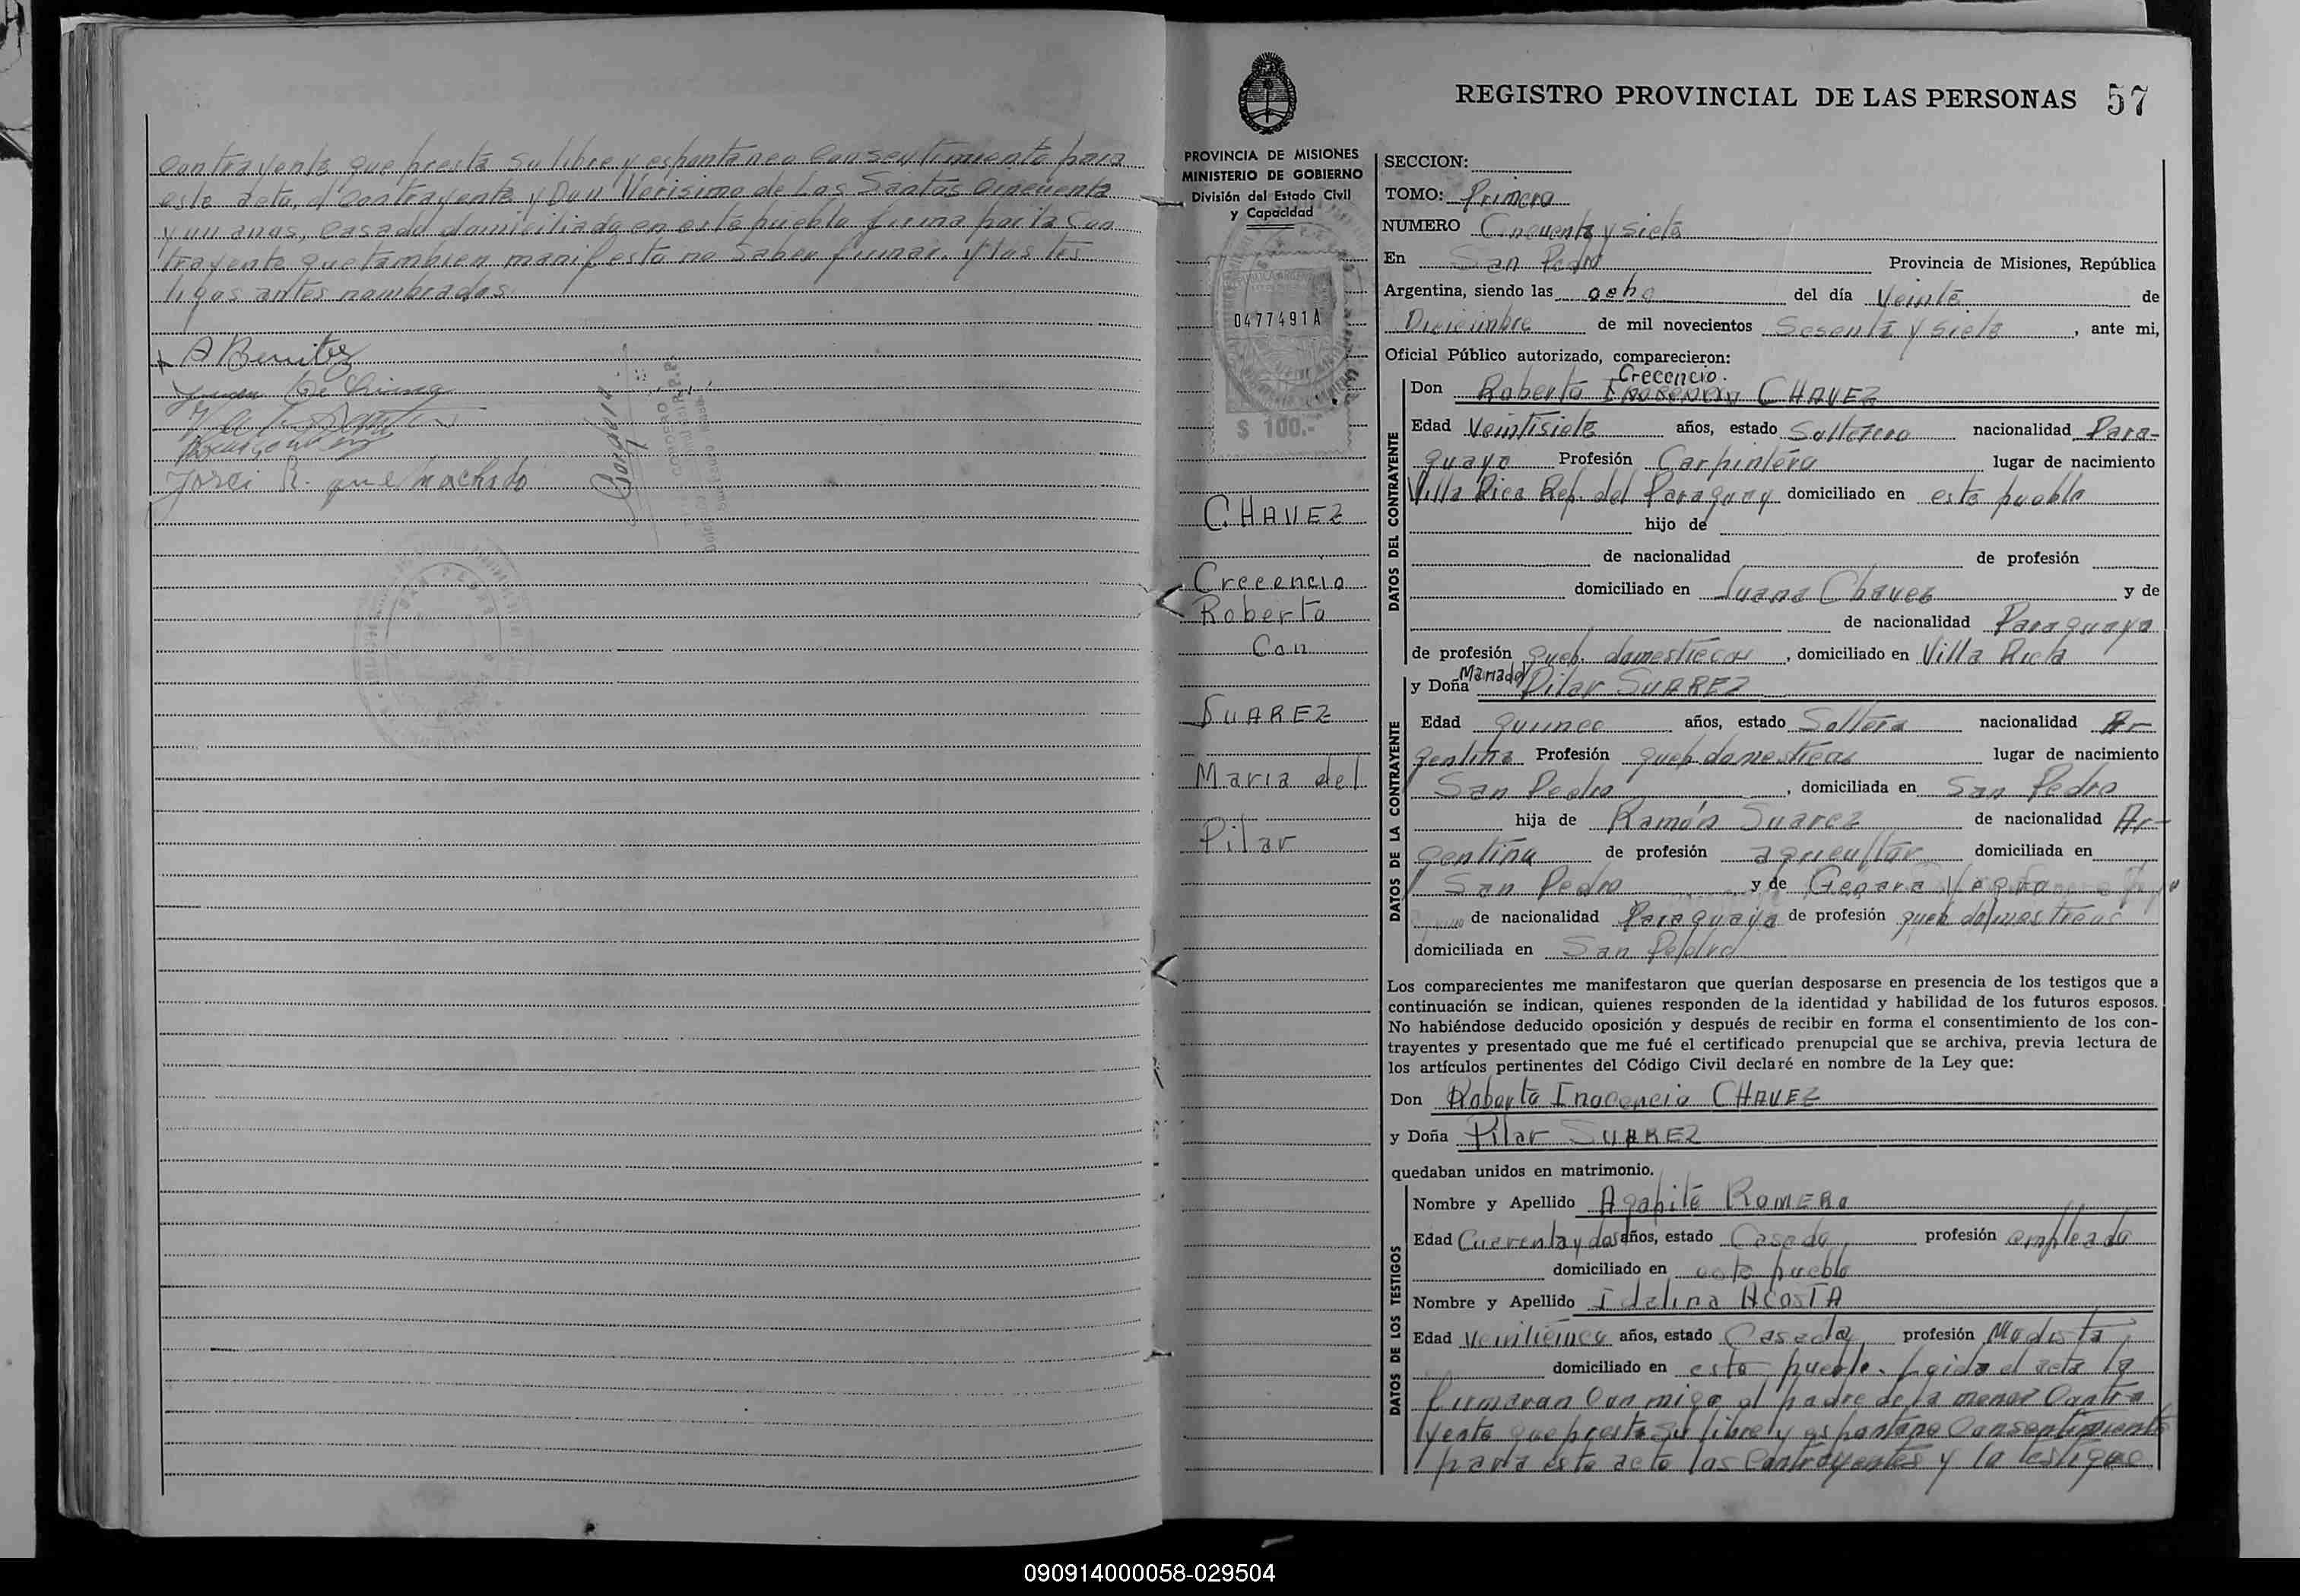 contrayente que presta su libre y espontaneo consentimiento para
este acto, el contrayente y Don Verisimo de Los Santos cincuenta
y un anos, casado domiciliado en este pueblo firma por la con
trayente que tambien manifesta no saber firmar. y los tes
tigos antes nombrados.
A Benitez
Jorei R. que Machado
REGISTRO PROVINCIAL DE LAS PERSONAS 57
PROVINCIA DE MISIONES
MINISTERIO DE GOBIERNO
División del Estado Civil
y Capacidad
0477491A
$ 100.-
CHAVEZ
Crecencio
Roberto
Con
SUAREZ
Maria del
Pilar
SECCION:
TOMO: Primero
NUMERO Cincuenta y siete
En San Pedro Provincia de Misiones, República
Argentina, siendo las ocho del día Veinte de
Diciembre de mil novecientos Sesenta y siete, ante mi,
Oficial Público autorizado, comparecieron:
DATOS DEL CONTRAYENTE
Crecencio.
Don Roberto CHAVEZ
Edad Veintisiete años, estado Solterero nacionalidad Para-
guayo Profesión Carpintero lugar de nacimiento
Villa Rica Rep. del Paraguay domiciliado en este pueblo
hijo de
de nacionalidad de profesión
domiciliado en Juana Chavez y de
de nacionalidad Paraguaya
de profesión queh. domesticos, domiciliado en Villa Rica
DATOS DE LA CONTRAYENTE
y Doña Maria del Pilar SUAREZ
Edad quince años, estado Soltera nacionalidad Ar-
gentina Profesión queh domesticos lugar de nacimiento
San Pedro, domiciliada en San Pedro
hija de Ramón Suarez de nacionalidad Ar-
gentina de profesión agricultor domiciliada en
San Pedro y de Genara
de nacionalidad Paraguaya de profesión queh domesticos
domiciliada en San Pedro
Los comparecientes me manifestaron que querían desposarse en presencia de los testigos que a
continuación se indican, quienes responden de la identidad y habilidad de los futuros esposos.
No habiéndose deducido oposición y después de recibir en forma el consentimiento de los con-
trayentes y presentado que me fué el certificado prenupcial que se archiva, previa lectura de
los artículos pertinentes del Código Civil declaré en nombre de la Ley que:
Don Roberto Inocencio CHAVEZ
y Doña Pilar SUAREZ
quedaban unidos en matrimonio.
DATOS DE LOS TESTIGOS
Nombre y Apellido Agapito ROMERO
Edad Cuarenta y dos años, estado Casado, profesión empleado
domiciliado en este pueblo
Nombre y Apellido Idalina ACOSTA
Edad Veinticinco años, estado Casada, profesión Modista
domiciliado en este pueblo. Leida el acta la
firmaran con migo el padre de la menor Contra
yente que presta su libre y espontano Consentimiento
para este acto los Contrayentes y lo testigos
090914000058-029504